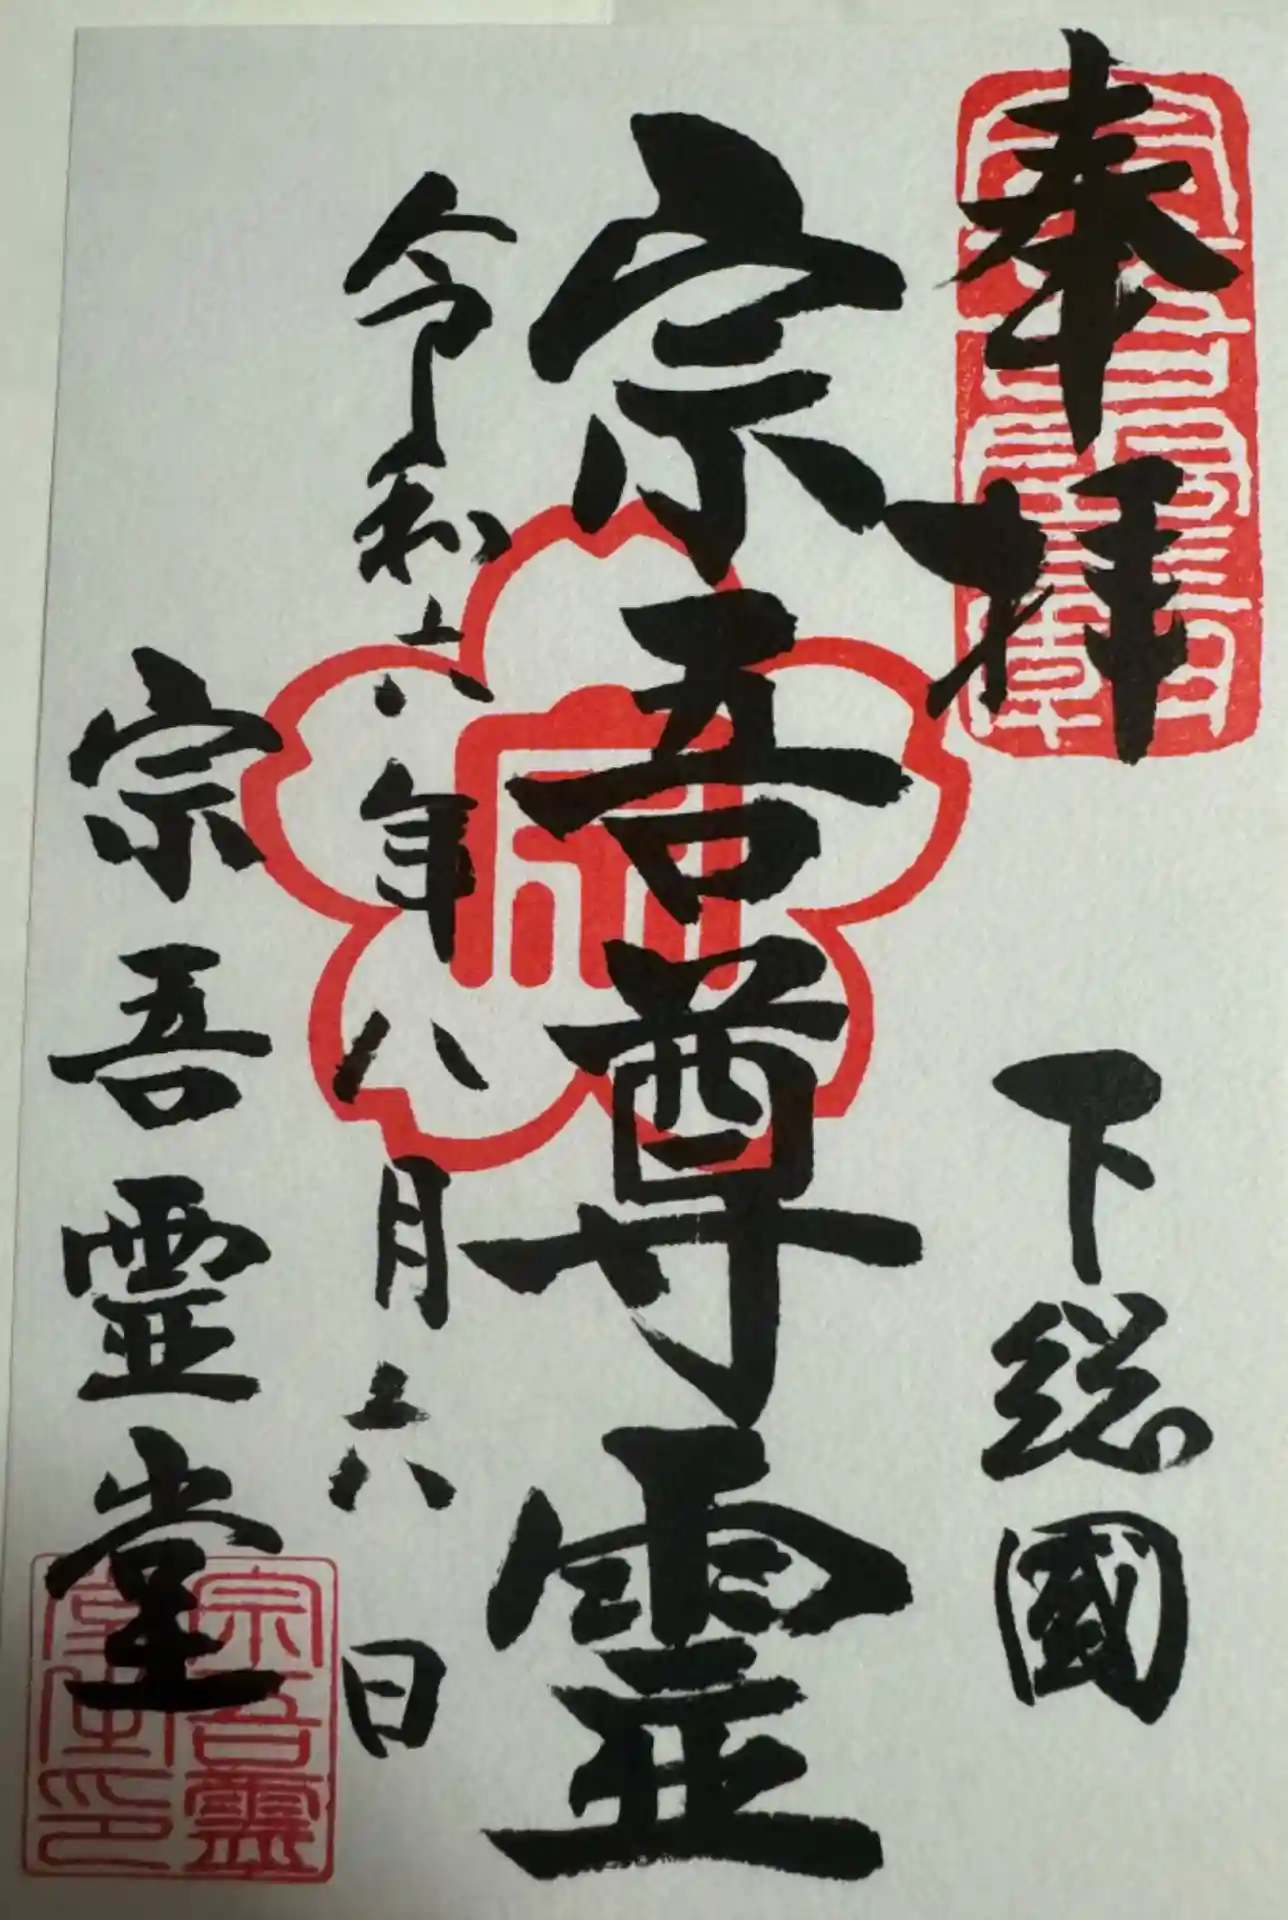 奉拝
下総國
宗吾尊霊
令和六年八月六日
宗吾霊堂
宗吾靈